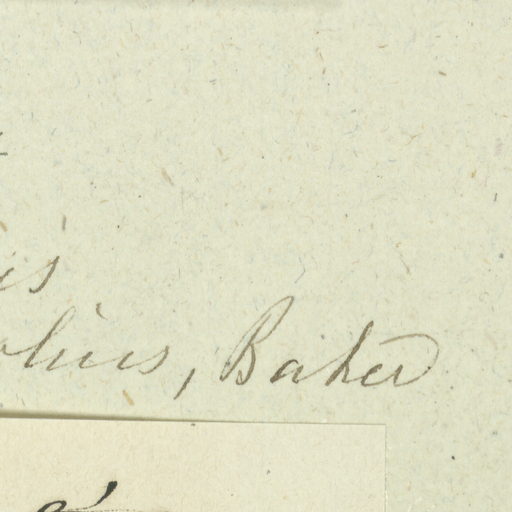 is
olius, Baker